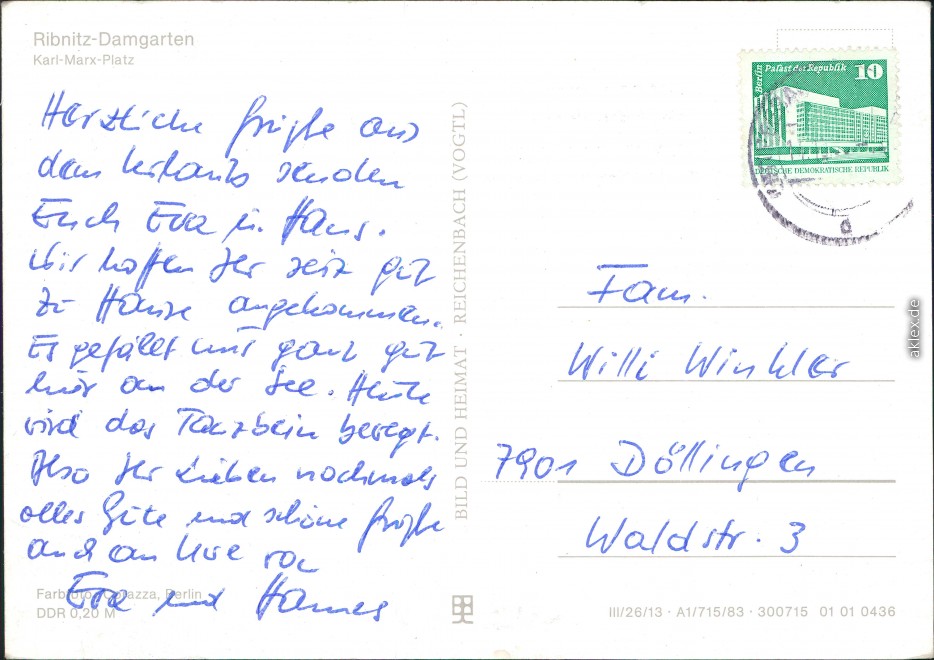 Ribnitz-Damgarten
Karl-Marx-Platz
Herzliche Grüße aus
dem Urlaub senden
Euch Eva u. Hans.
Wir hoffen Ihr seit gut
zu Hause angekommen.
Es gefällt uns ganz gut
hier an der See. Heute
wird das Tanzbein bewegt.
Also Ihr Lieben nochmals
alles Gute und schöne Grüße
auch an Uwe von
Eva und Hannes
BILD UND HEIMAT · REICHENBACH (VOGTL)
Berlin
Palast der Republik
10
DEUTSCHE DEMOKRATISCHE REPUBLIK
Fam.
Willi Winkler
7901 Döllingen
Waldstr. 3
Berlin
DDR 0,20 M
III/26/13 · A1/715/83 · 300715 01 01 0436
aklex.de